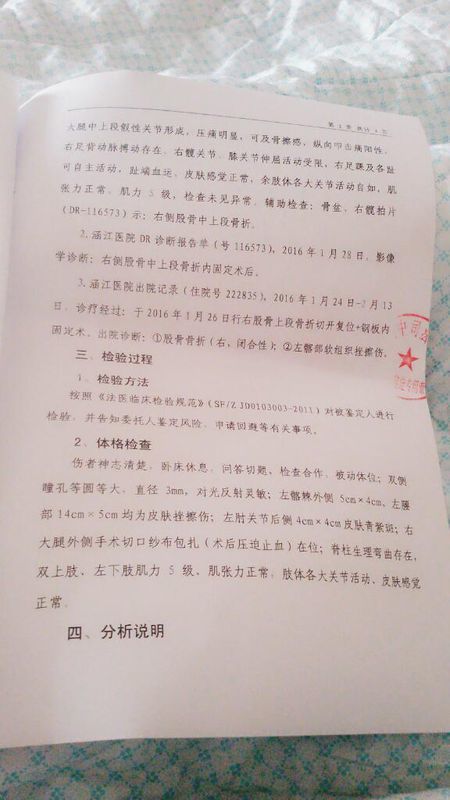 第 2 页 共计 4 页
大腿中上段假性关节形成，压痛明显，可及骨擦感，纵向叩击痛阳性，
右足背动脉搏动存在，右髋关节、膝关节伸屈活动受限，右足踝及各趾
可自主活动，趾端血运、皮肤感觉正常，余肢体各大关节活动自如，肌
张力正常，肌力 5 级，检查未见异常。辅助检查：骨盆、右髋拍片
(DR-116573) 示：右侧股骨中上段骨折。
2.涵江医院 DR 诊断报告单（号 116573），2016 年 1 月 28 日，影像
学诊断：右侧股骨中上段骨折内固定术后。
3.涵江医院出院记录（住院号 222835），2016 年 1 月 24 日-2 月 13
日，诊疗经过：于 2016 年 1 月 26 日行右股骨上段骨折切开复位+钢板内
固定术。出院诊断：①股骨骨折（右，闭合性）；②左髂部软组织挫擦伤。
三、检验过程
1、检验方法
按照《法医临床检验规范》（SF/Z JD0103003-2011）对被鉴定人进行
检验，并告知委托人鉴定风险、申请回避等有关事项。
2、体格检查
伤者神志清楚，卧床休息，问答切题，检查合作，被动体位；双侧
瞳孔等圆等大，直径 3mm，对光反射灵敏；左髂棘外侧 5cm×4cm、左腰
部 14cm×5cm 均为皮肤挫擦伤；左肘关节后侧 4cm×4cm 皮肤青紫斑；右
大腿外侧手术切口纱布包扎（术后压迫止血）在位；脊柱生理弯曲存在，
双上肢、左下肢肌力 5 级、肌张力正常，肢体各大关节活动、皮肤感觉
正常。
四、分析说明